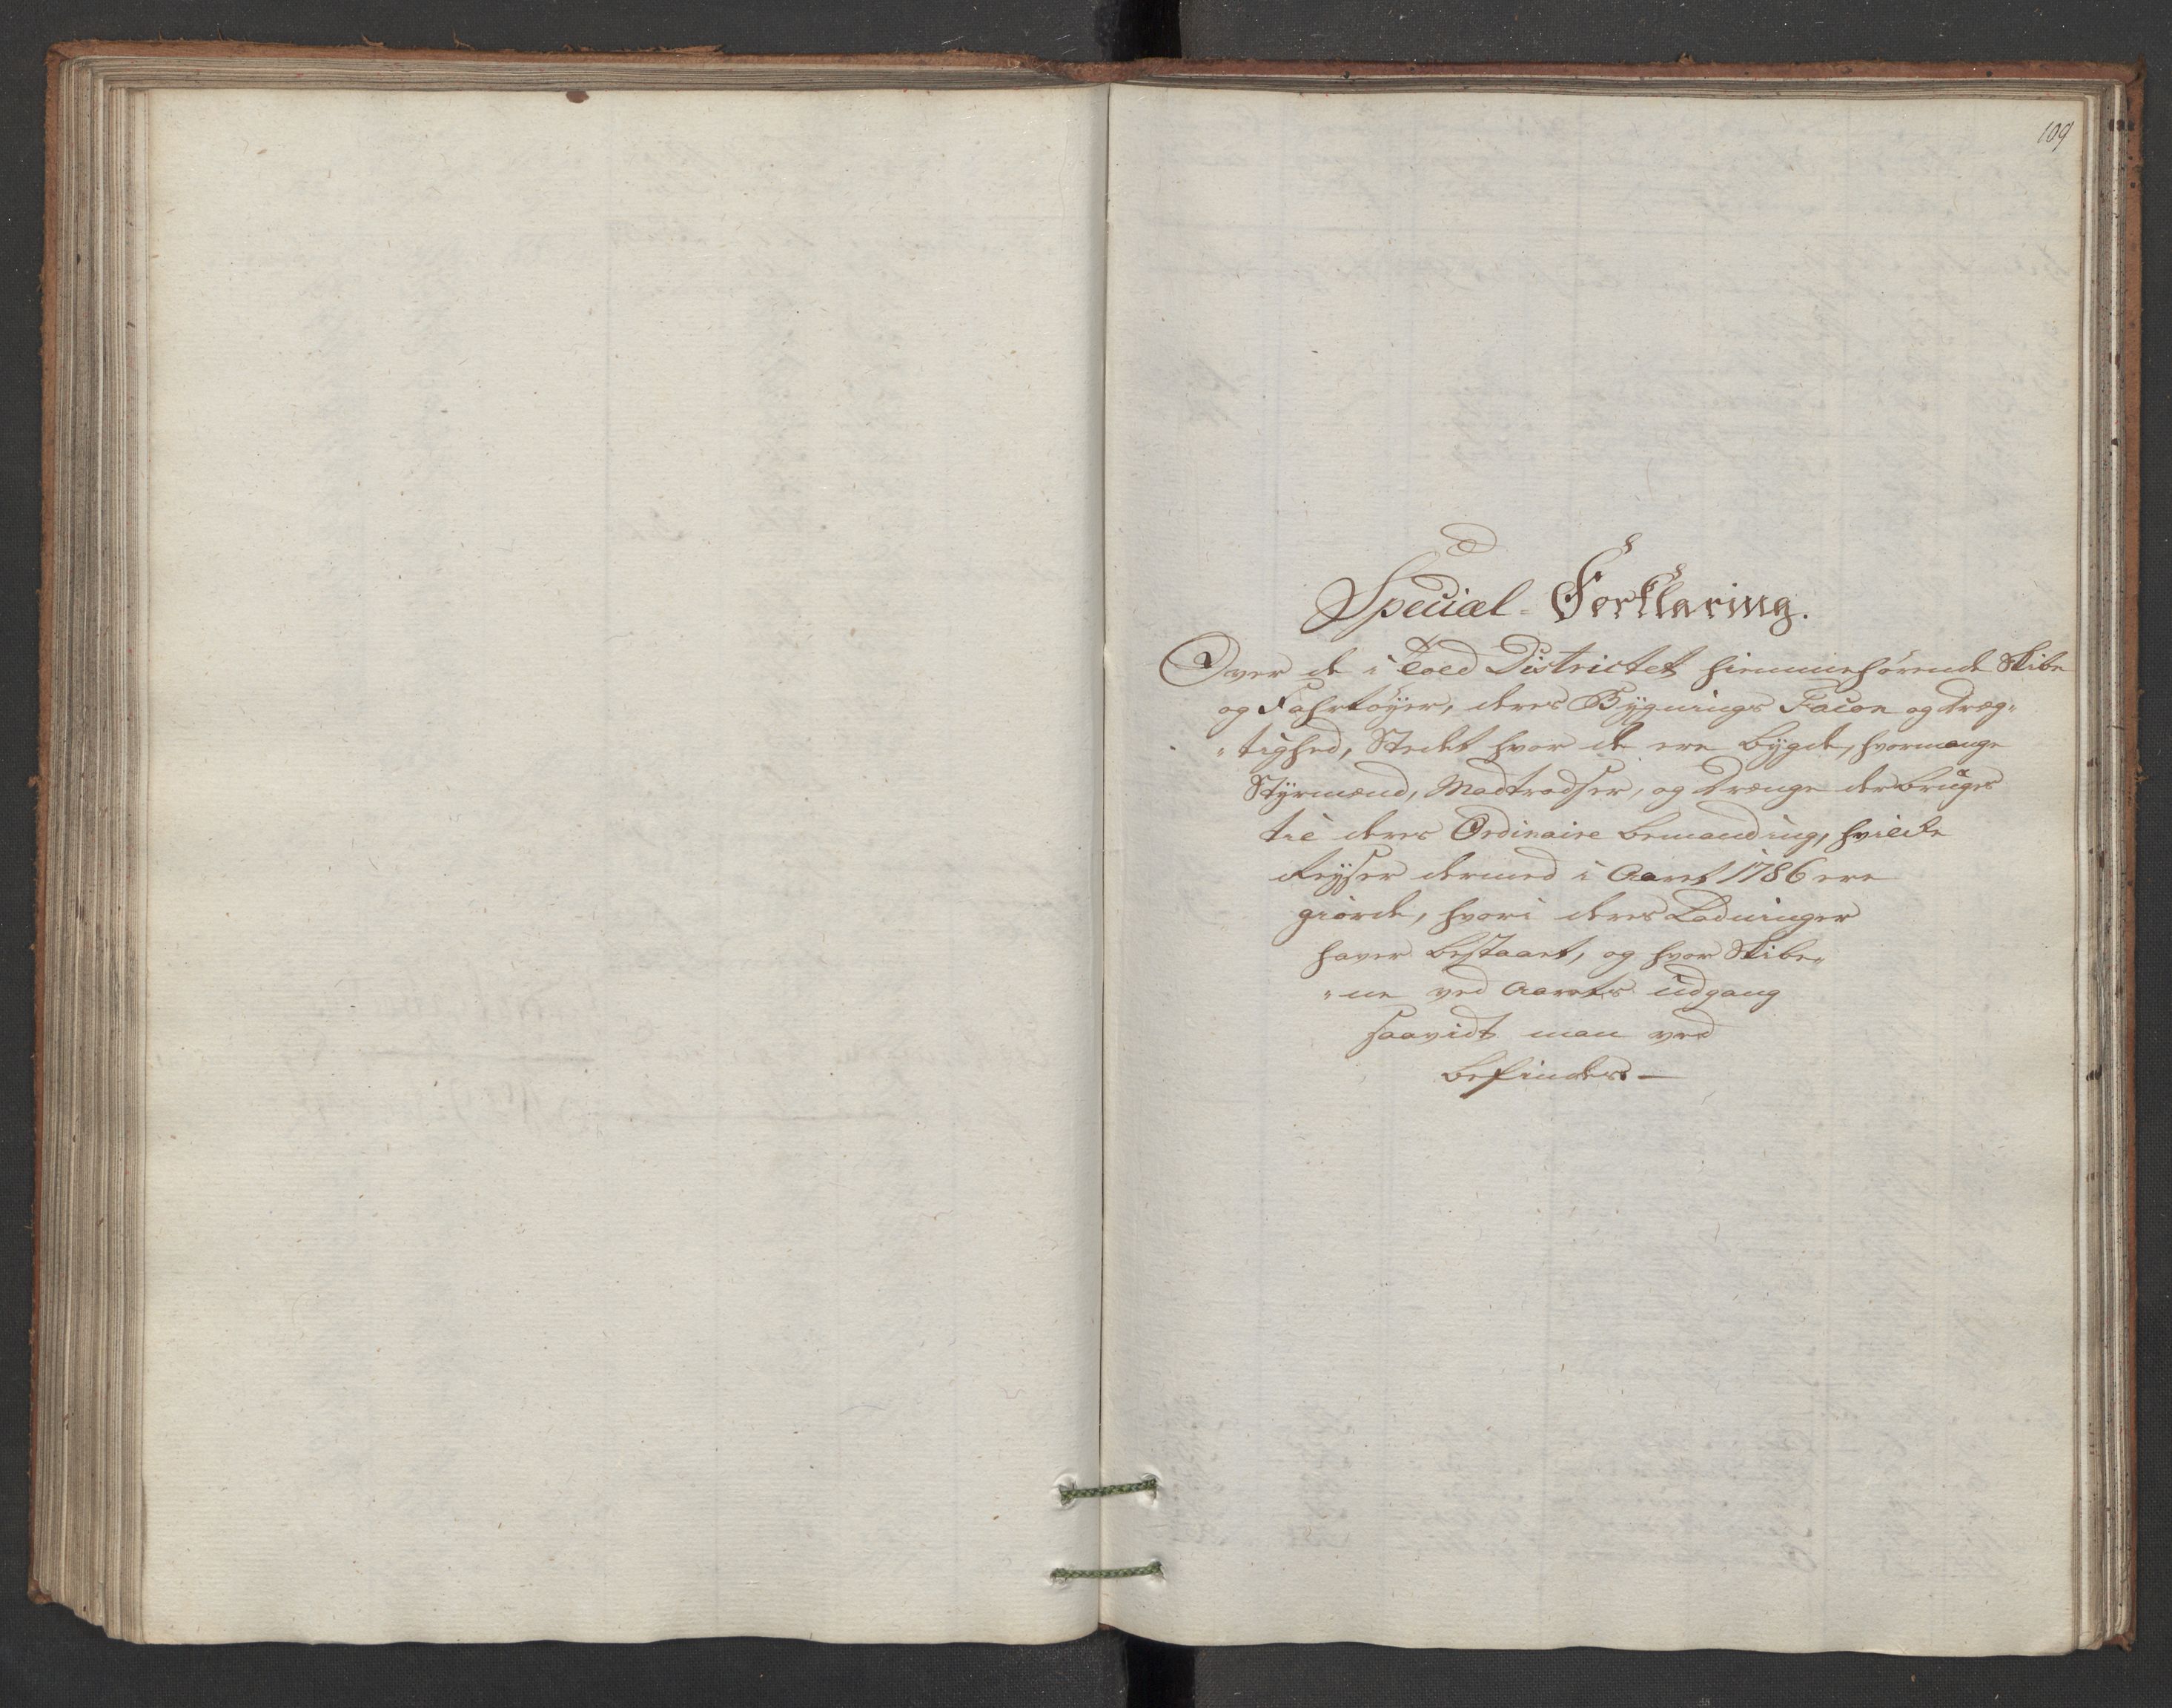 109
Special-Forklaring.
Over de i Told Districtet hiemmehørende Skibe
og Fahrtøyer, deres Bygnings Facon og Dræg„
„tighed, Stedet hvor de ere bÿgde, hvormange
Stÿrmænd, Madtrodser, og Drænge der bruges
til deres Ordinaire bemanding, hvilcke
Reÿser dermed i Aaret 1786 ere
giørde, hvori deres Ladninger
haver bestaaet, og hvor Skibe„
„ne ved Aarets udgang
saavidt man ved
befindes.—